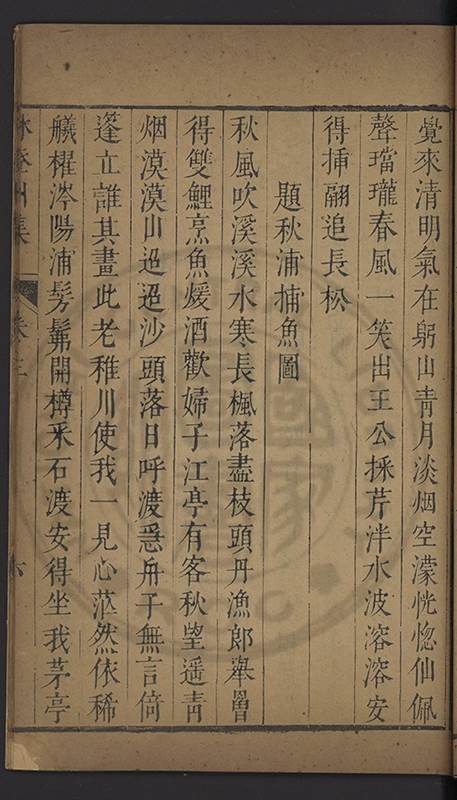 覺來清明氣在躬山青月淡烟空濛恍惚仙佩
聲璫瓏春風一笑出王公採芹泮水波溶溶安
得挿翮追長松
題秋浦捕魚圖
秋風吹溪溪水寒長楓落盡枝頭丹漁郎舉罾
得雙鯉烹魚煖酒歡婦子江亭有客秋望遥青
烟漠漠山迢迢沙頭落日呼渡急舟子無言倚
蓬立誰其畫此老稚川使我一見心茫然依稀
艤櫂涔陽浦髣髴開樽采石渡安得坐我茅亭
集 卷三
六